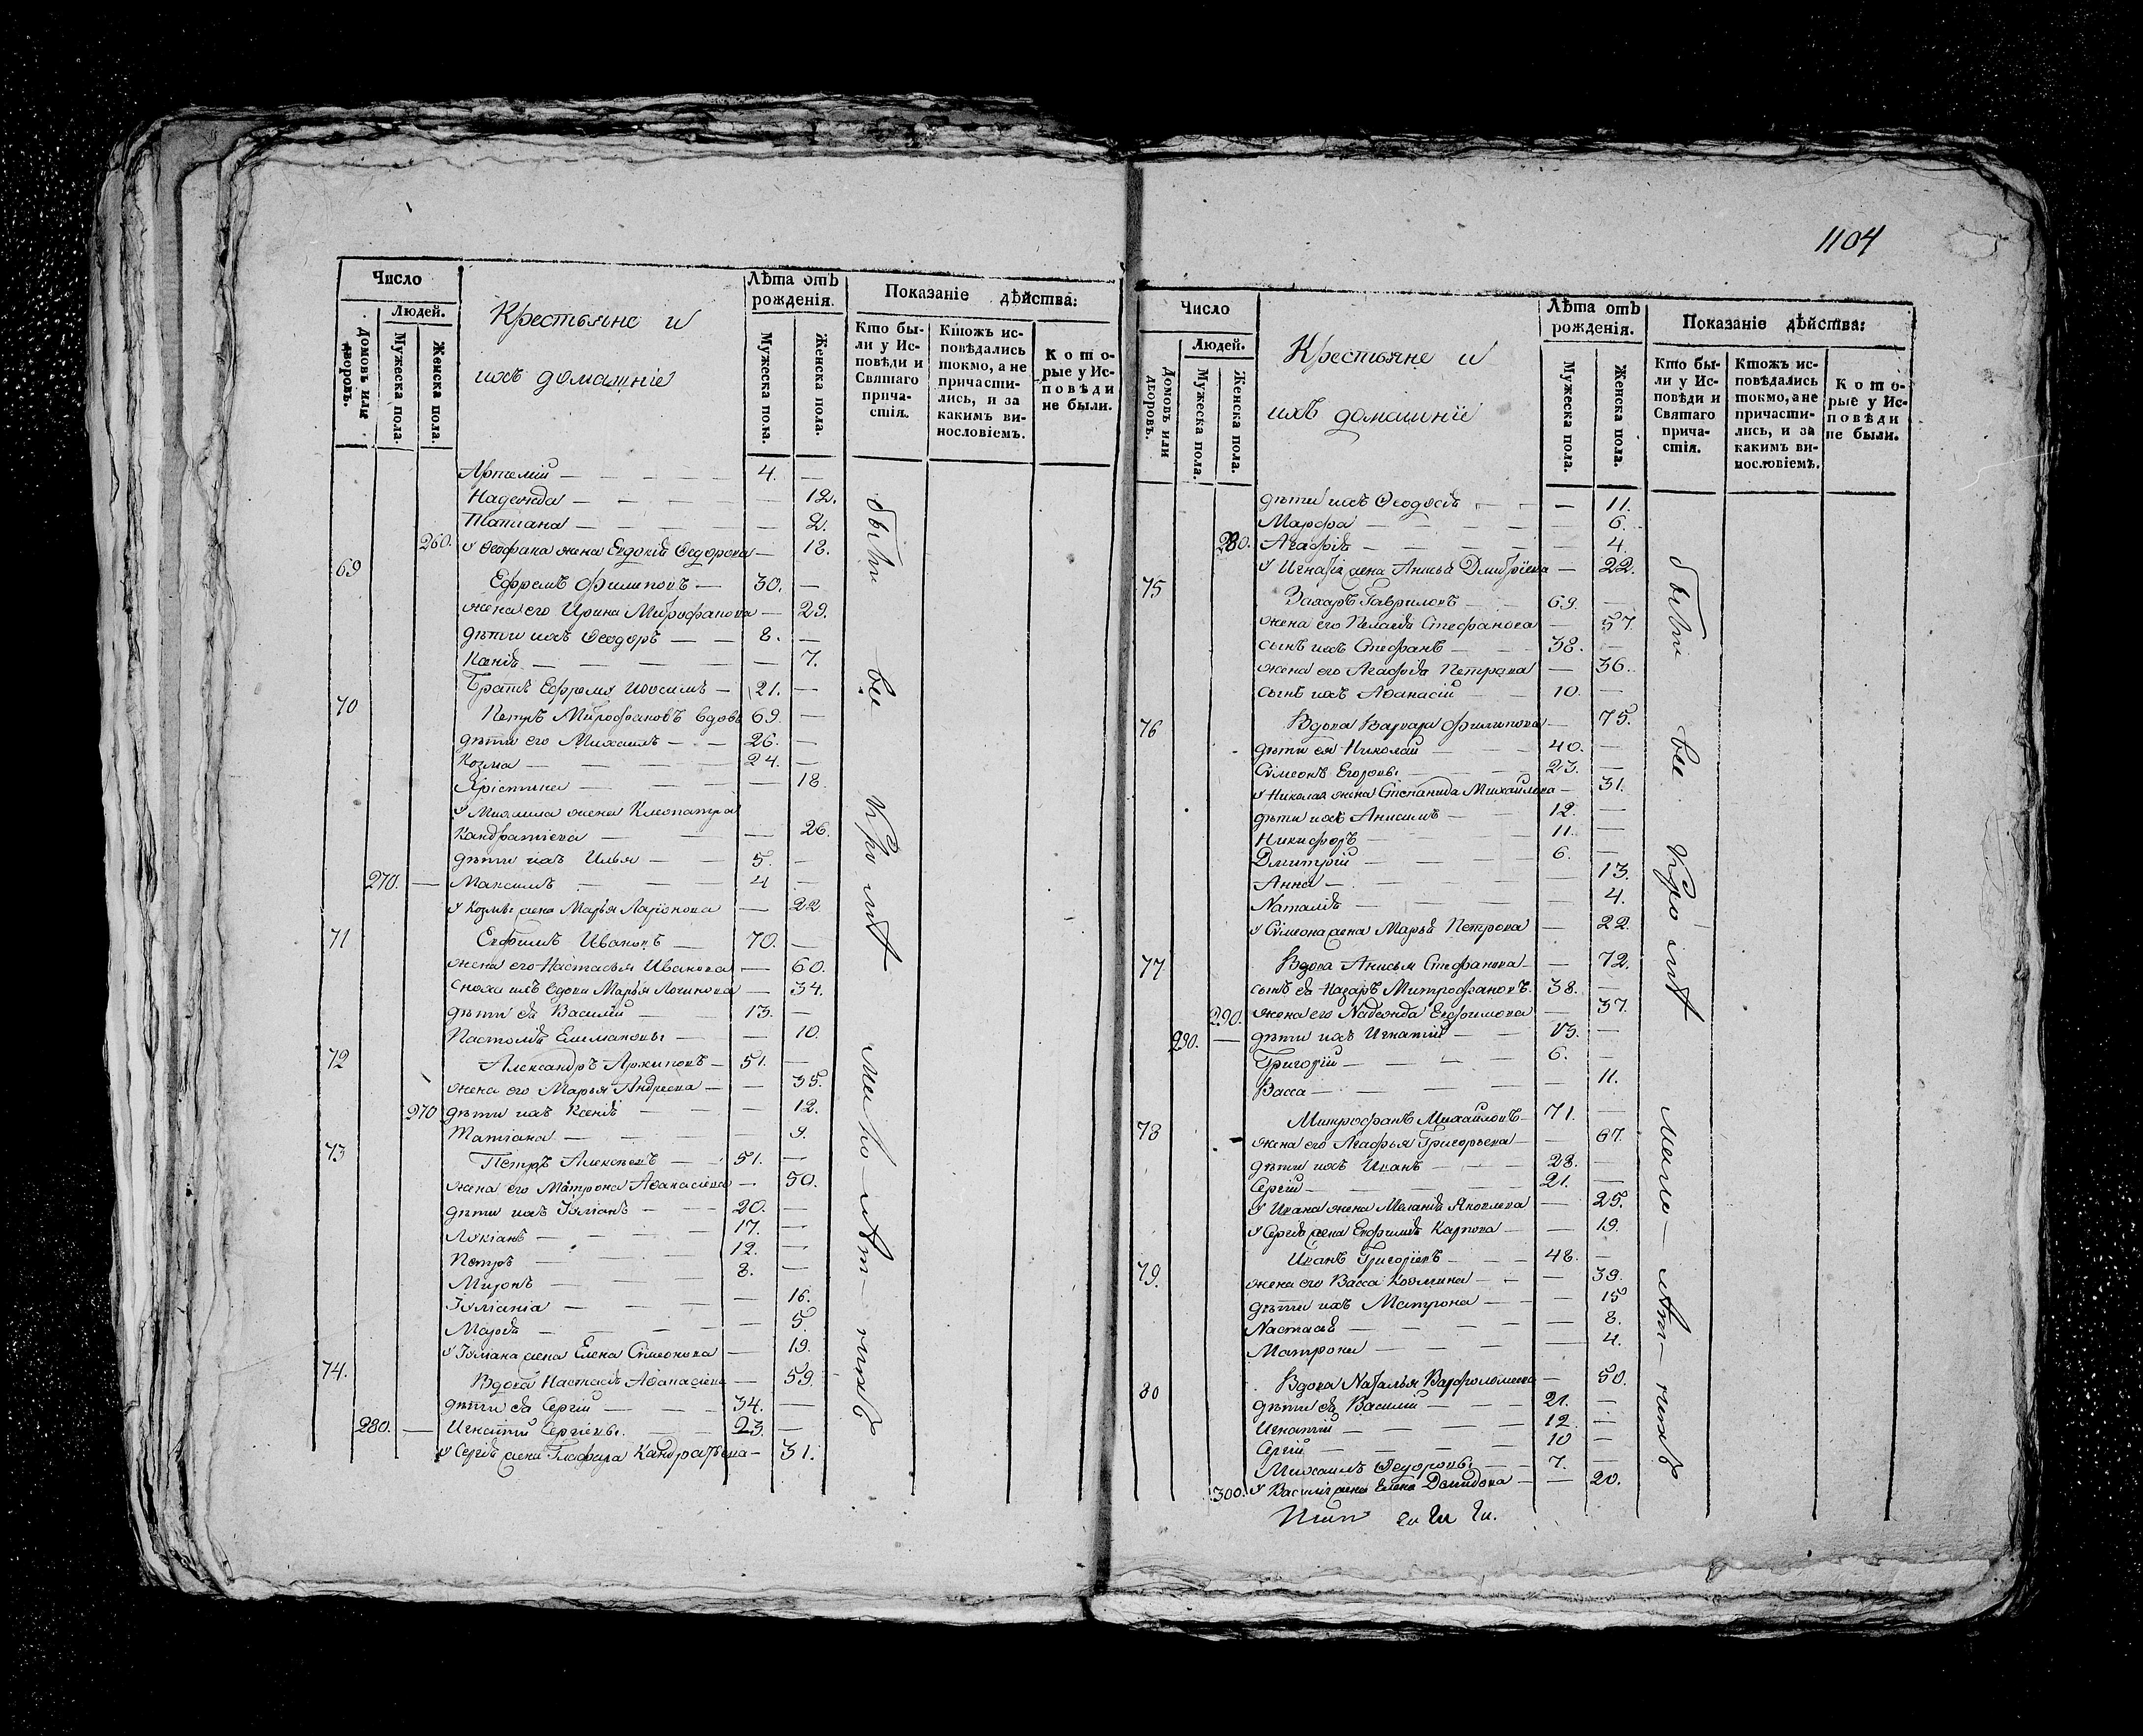 1104
Число
Людей.
Домовъ или дворовъ.
Мужеска пола.
Женска пола.
Крестьяне и
ихъ домашніе
Лѣта отъ рожденія.
Мужеска пола.
Женска пола.
Показаніе дѣйства:
Кто бы-
ли у Ис-
повѣди и
Святаго
прича-
стія.
Ктожъ ис-
повѣдались
токмо, а не
причасти-
лись, и за
какимъ ви-
нословіемъ.
Кото-
рые у Ис-
повѣди
не были.
Артемій — 4. —
Надежда — — 12.
Татиана — — 2.
260. У Феофана жена Евдокія Федорова — 18.
69
Ефремъ Филиповъ — 30. —
жена его Ирина Митрофанова — 29.
дѣти ихъ Феодоръ — 8. —
Ксенія — — 7.
Братъ Ефрема — 21. —
70
Петръ Митрофановъ вдовъ 69. —
дѣти его Михаилъ — 26. —
Козма — 24. —
Христина — — 18
У Михаила жена Клеопатра
Кандратіева — — 26.
дѣти ихъ Илья — 5. —
270. — Максимъ — 4 —
У Козмы жена Марья Ларіонова — 22
71
Евфимъ Ивановъ — 70. —
жена его Настасья Иванова — 60.
сноха ихъ вдова Марья Логинова — 34.
дѣти ея Василій — 13. —
— — 10.
72
Александръ Архиповъ — 51. —
жена его Марья Андреева — — 35.
270 дѣти ихъ Ксенія — — 12.
Татіана — — 9.
73
Петръ Алексѣевъ — 51. —
жена его Матрона Афанасіева — 50.
дѣти ихъ Іуліанъ — 20. —
Лукіанъ — 17. —
Петръ — 12. —
Миронъ — 8. —
Іуліанія — — 16.
Марья — — 5.
У Іуліана жена Елена Симеонова — 19.
74.
Вдова Настасія Афанасіева — 59.
дѣти ея Сергій — 34. —
280. — Игнатій Сергіевы. — 23. —
У Сергія жена Глафира Кандратьева — 31.
были все
Число
Людей.
Домовъ или дворовъ.
Мужеска пола.
Женска пола.
Крестьяне и
ихъ домашніи
Лѣта отъ рожденія.
Мужеска пола.
Женска пола.
Показаніе дѣйства:
Кто бы-
ли у Ис-
повѣди и
Святаго
прича-
стія.
Ктожъ ис-
повѣдались
токмо, а не
причасти-
лись, и за
какимъ ви-
нословіемъ.
Кото-
рые у Ис-
повѣди
не были.
дѣти ихъ Феодосія — — 11.
Марфа — — 6.
280. Агафія — — 4.
У Игнатія жена Анисья Дмитріева — 22.
75
Захаръ Гавриловъ — 69. —
жена его Пелагія Стефанова — 57.
сынъ ихъ Стефанъ — 38. —
жена его Агафія Петрова — 36.
сынъ ихъ Афанасій — 10. —
76
Вдова Варвара Филипова — 75.
дѣти ея Николай — 40. —
Симеонъ Егоровы — 23. —
У Николая жена Степанида Михайлова — 31.
дѣти ихъ Анисимъ — 12. —
Никифоръ — 11. —
Дмитрій — 6. —
Анна — — 13.
Наталія — — 4.
У Симеона жена Марья Петрова — 22.
77
Вдова Анисья Стефанова — — 72.
сынъ ея Назаръ Митрофановъ. 38. —
290. жена его Надежда Евфимова — 37.
290. — дѣти ихъ Игнатій — 13. —
Григорій — 6. —
Васса — — 11.
78
Митрофанъ Михайловъ — 71. —
жена его Агафья Григорьева — 67.
дѣти ихъ Иванъ — 28. —
Сергій — 21. —
У Ивана жена Меланія Яковлева — 25.
У Сергія жена Евфимія Карпова — 19.
79.
Иванъ Григоріевъ — 48. —
жена его Васса Козмина — 39.
дѣти ихъ Матрона — — 15
Настасія — — 8.
Матрона — — 4.
80
Вдова Наталья Варфоломеева — 50.
дѣти ея Василій — 21. —
Игнатій — 12 —
Сергій — 10 —
Михаилъ Федоровы — 7. —
300. У Василія жена Елена Демидова — 20.
были все